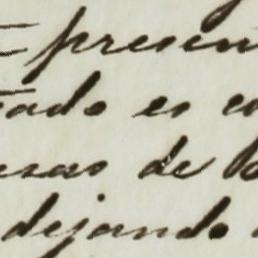 presen
tado es co
esas de
dejando